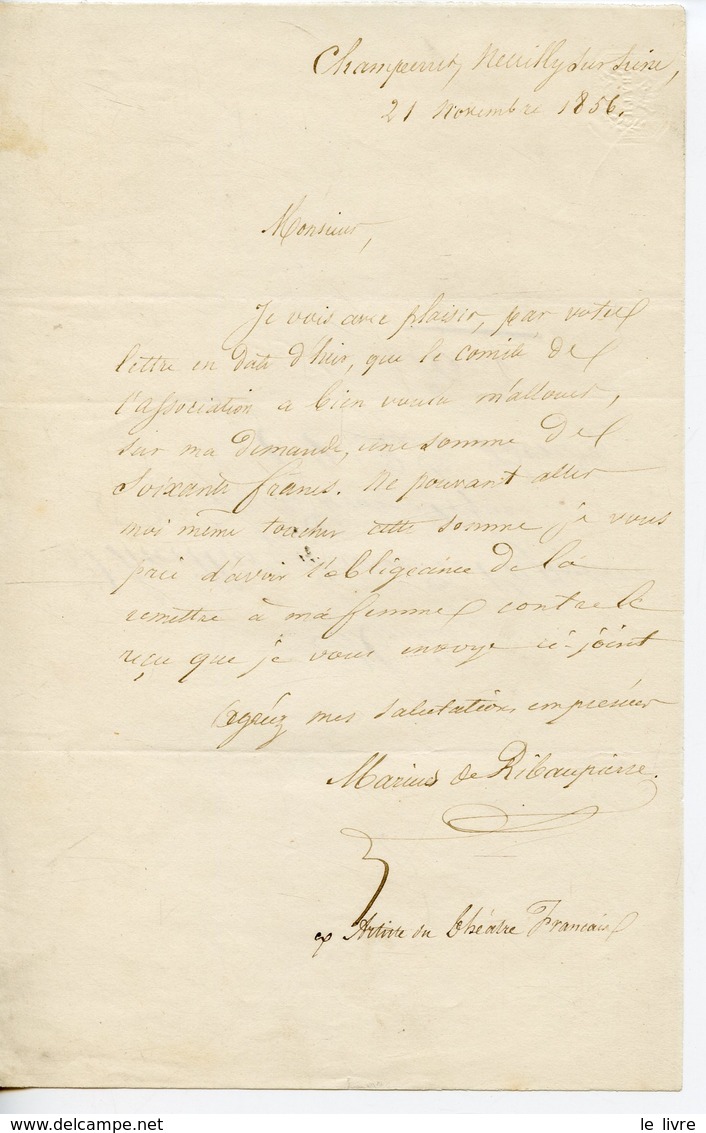 Champerret, Neuilly sur Seine,
21 Novembre 1856.
Monsieur,
Je vois avec plaisir, par votre
lettre en date d'hier, que le comité de
l'association a bien voulu m'allouer,
sur ma demande, une somme de
Soixante francs. Ne pouvant aller
moi même toucher cette somme je vous
prie d'avoir l'obligeance de la
remettre à ma femme contre le
reçu que je vous envoye ci-joint
Agréez mes salutations empressées
Marius de Ribaupierre.
ex Artiste du théâtre Français
le livre